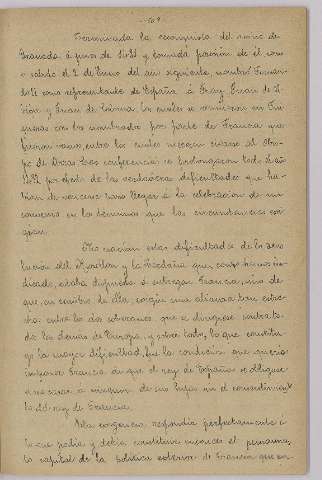 Terminada la conquista del reino de
Granada á fines de 1491 y tomada posesión de él con
el saludo el 2 de Enero del año siguiente, nombró Fernan-
do como representante de España á Fray Juan de
y Juan de los cuales se reunieron en Fi-
gueras con los nombrados por parte de Francia que
fueron varios entre los cuales merecen citarse el Obis-
po de Las conferencias se prolongaron todo el año
1492 por efecto de las verdaderas dificultades que ha-
bían de vencerse para llegar á la celebración de un
convenio en los términos que las circunstancias exi-
gían.
No nacían estas dificultades de la devo-
lución del Rosellón y la Cerdaña que, como hemos in-
dicado, estaba dispuesta á entregar Francia, sino de
que, en cambio de ella, exigía una alianza tan estre-
cha entre los dos soberanos que se dirigiese contra to-
do los demás de Europa, y sobre todo, lo que constitu-
yó la mayor dificultad, fué la condición que quería
imponer Francia de que el rey de España se obligase
á no casar á ninguno de sus hijos sin el consentimiento
del rey de Francia.
Esta exigencia respondía perfectamente á
lo que podía y debía constituir entonces el pensamien-
to capital de la política exterior de Francia que